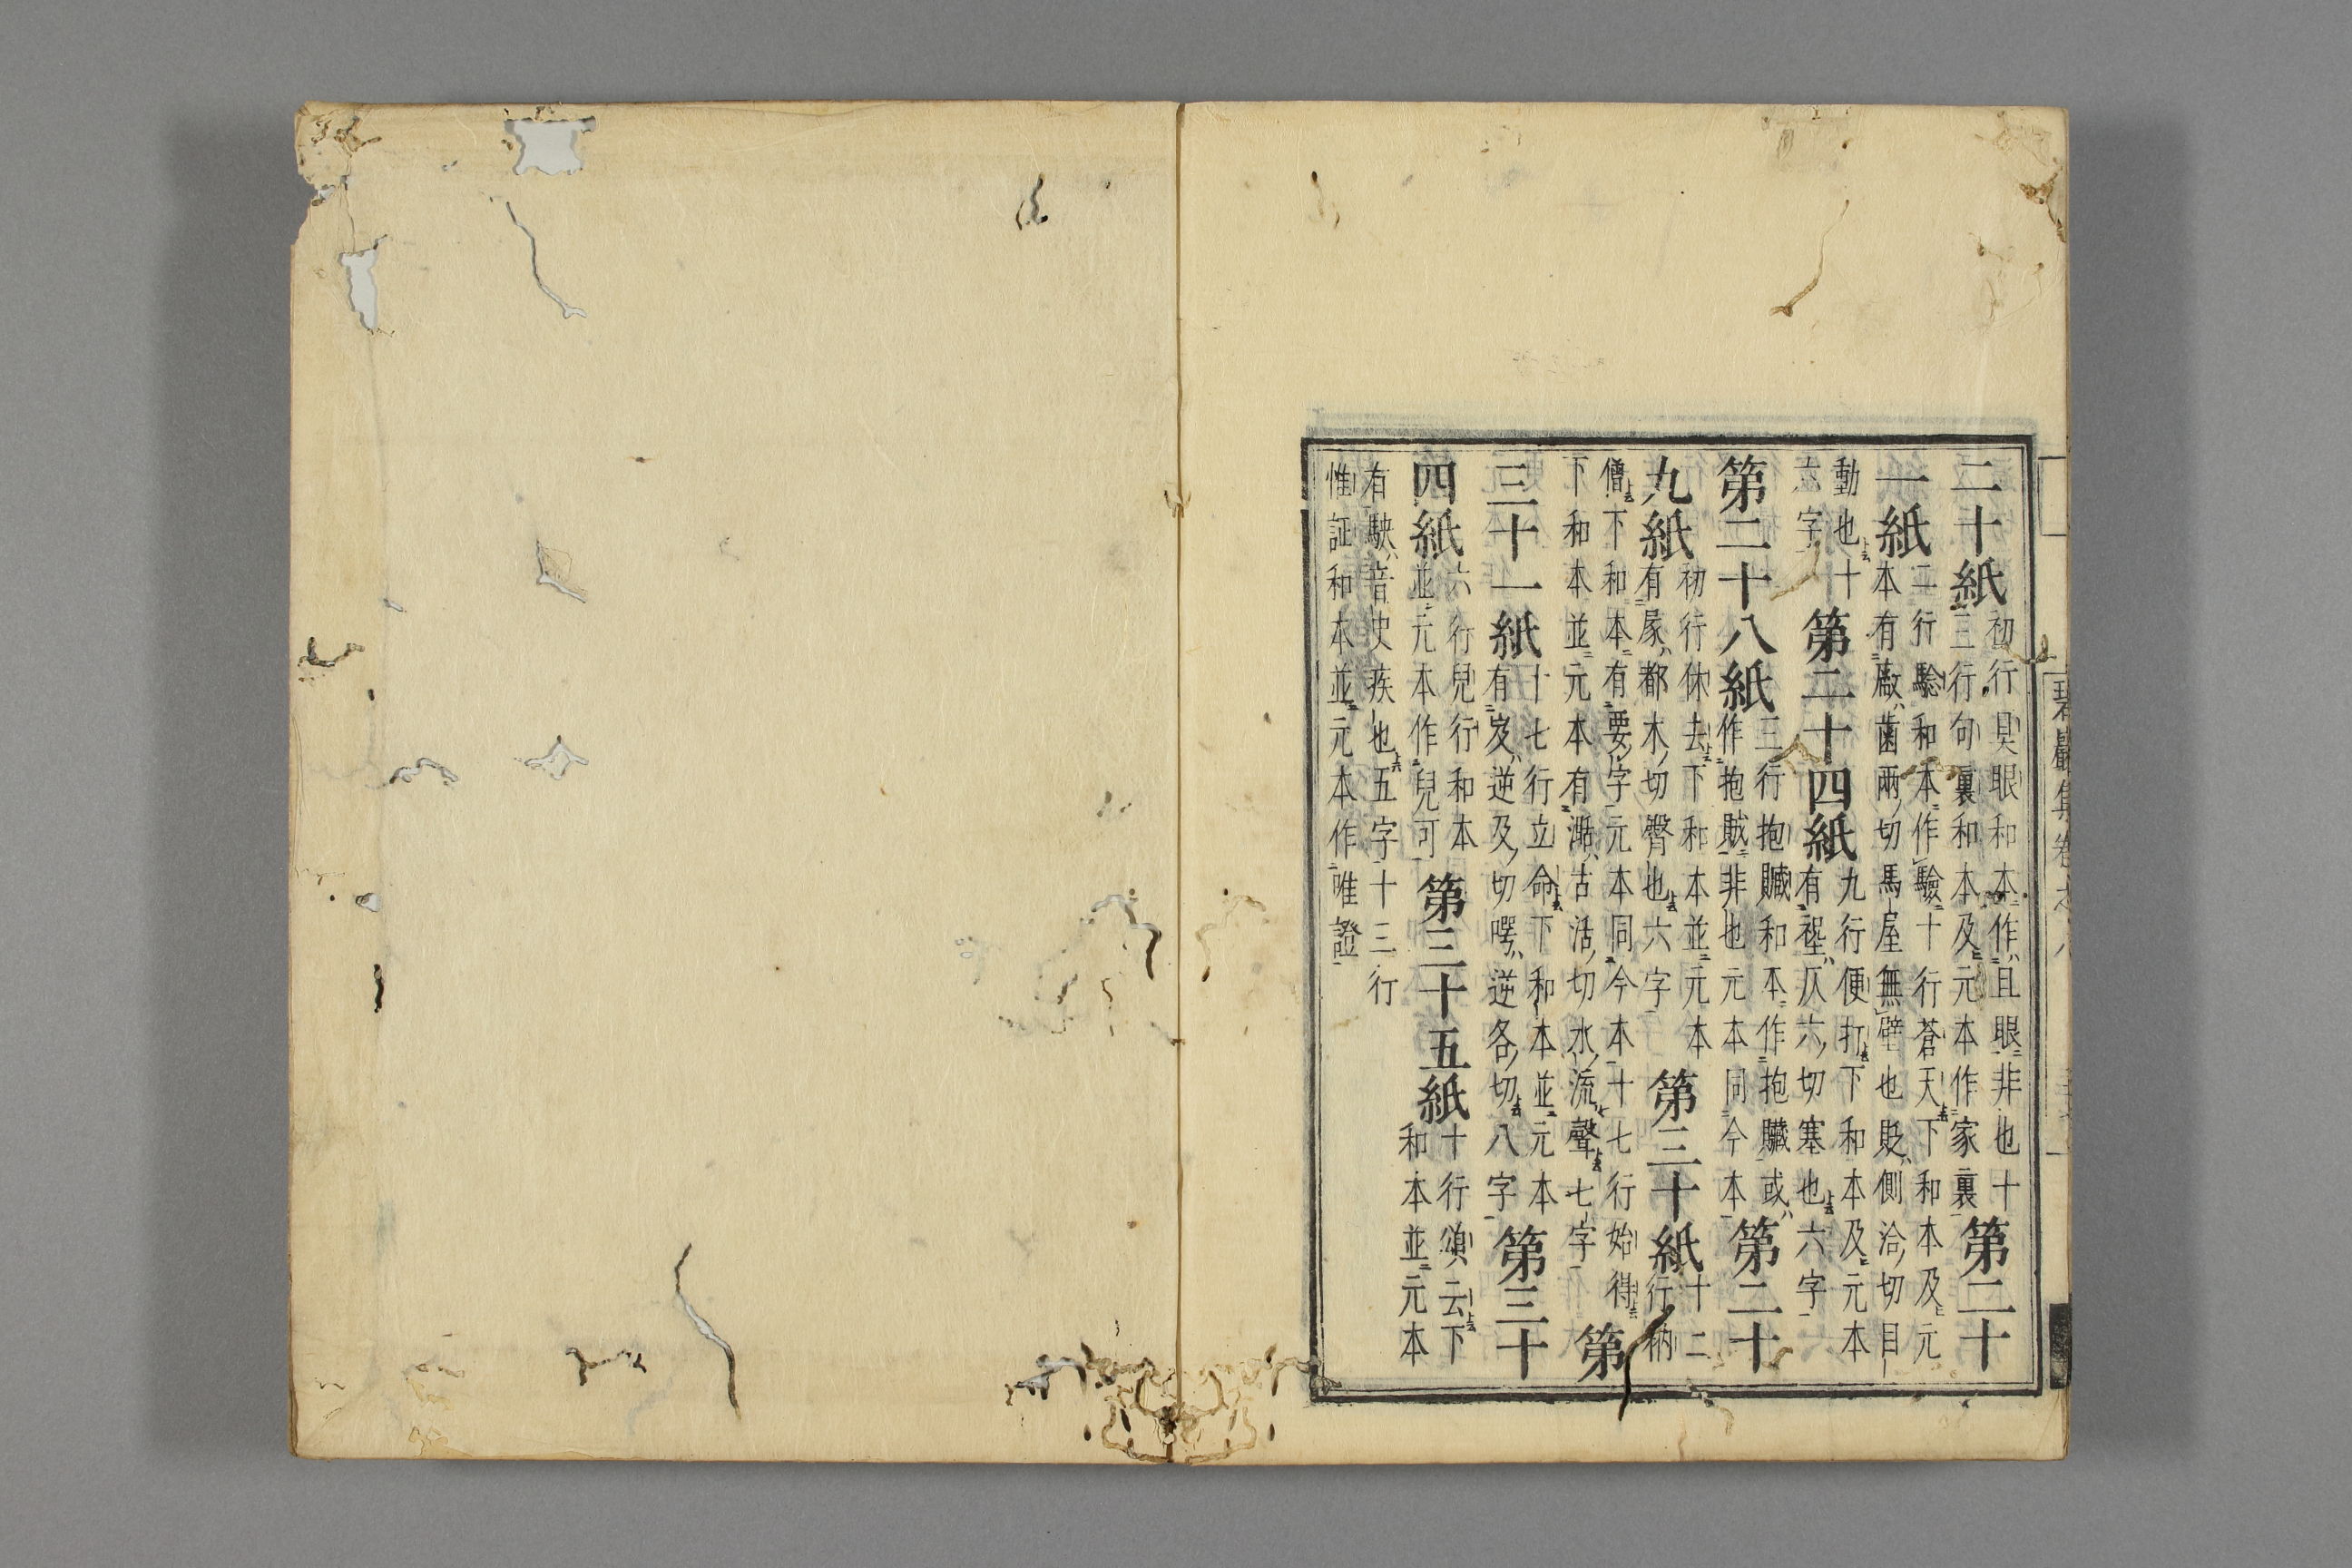 碧巖集卷之八
二十紙初行具眼和本作且眼非也十三行句裏和本及元本作家裏第二十
一紙二行驗和本作驗十行蒼天下和本及元本有廠齒兩切馬屋無壁也貶側洽切目
動也十六字第二十四紙九行便打下和本及元本有仄六切塞也六字
第二十八紙三行抱贓和本作抱贓或作抱賊非也元本同今本第二十
九紙初行休去下和本並元本有都木切臀也六字第三十紙十二行衲
僧下和本有要字元本同今本十七行始得下和本並元本有古活切水流聲七字第
三十一紙十七行立命下和本並元本有岌逆及切㗁逆各切八字第三十
四紙六行兒行和本並元本作兒可第三十五紙十行頌云下和本並元本
有駃音史疾也五字十三行惟証和本並元本作唯證